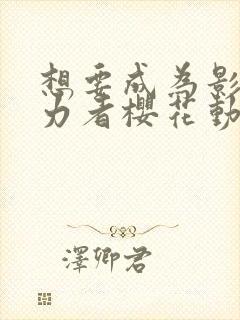 想要成为影
力者樱花動
澤卿君